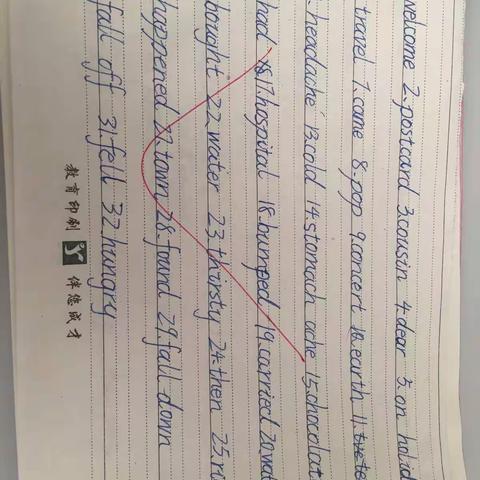 welcome 2.postcard 3.cousin 4.dear 5.on holid
travel 7.came 8.pop 9.concert 10.earth 11.
headache 13.cold 14.stomach ache 15.chocolat
had 17.hospital 18.bumped 19.carried 20.wat
bought 22.water 23.thirsty 24.then 25.
happened 27.town 28.found 29.fall down
fall off 31.fell 32.hungry
教育印刷 伴您成才